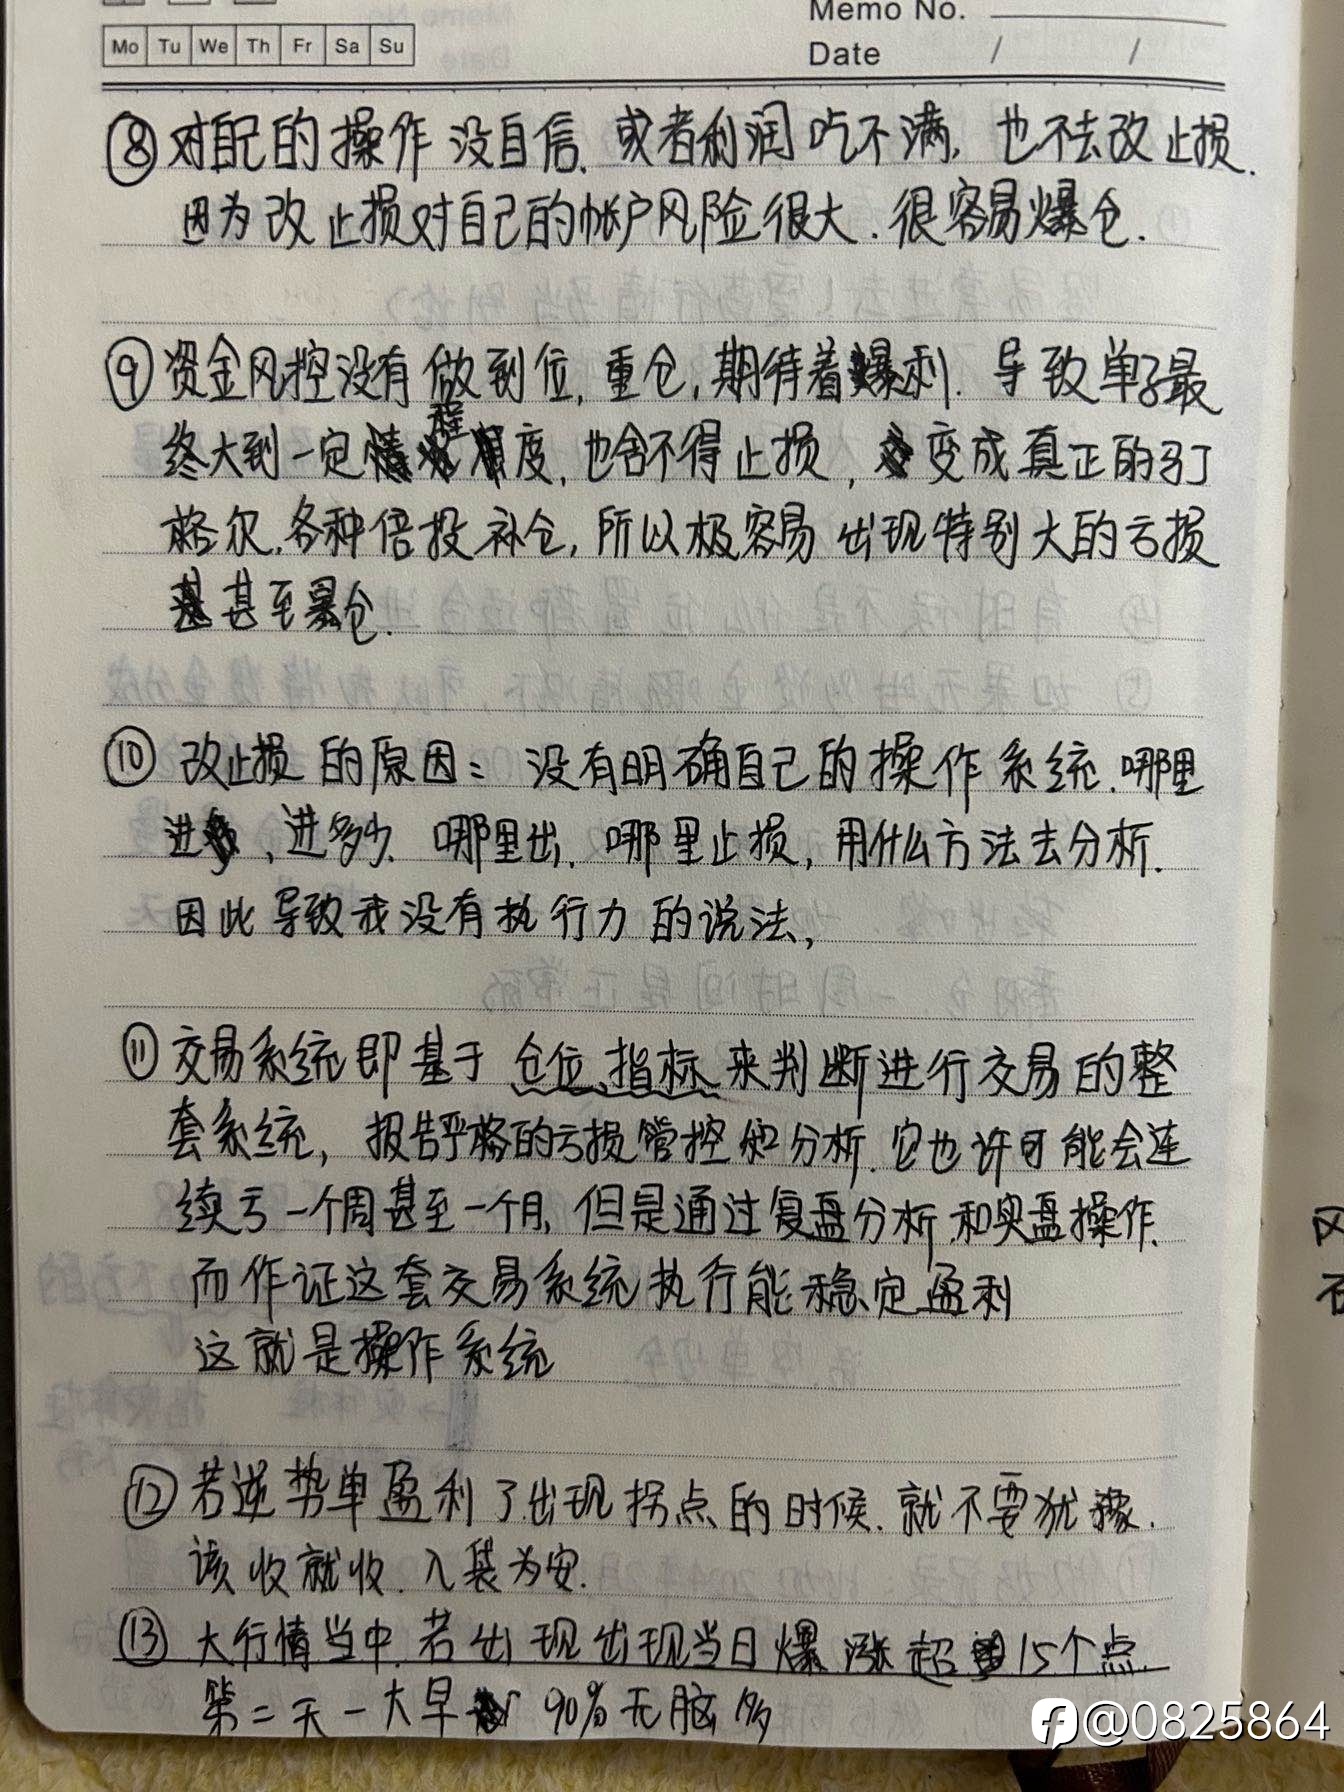 Memo No.
Mo Tu We Th Fr Sa Su
Date / /
⑧ 对自己的操作没自信、或者利润吃不满,也不去改止损.
因为改止损对自己的帐户风险很大.很容易爆仓.
⑨ 资金风控没有做到位,重仓,期待着爆利.导致单子最
终大到一定程度,也舍不得止损,变成真正的马丁
格尔.各种倍投补仓,所以极容易出现特别大的亏损
甚至暴仓.
⑩ 改止损的原因:没有明确自己的操作系统.哪里
进、进多少.哪里出.哪里止损,用什么方法去分析.
因此导致我没有执行力的说法,
⑪ 交易系统即基于仓位、指标来判断进行交易的整
套系统,报告严格的亏损管控和分析.它也许可能会连
续亏一个周甚至一个月,但是通过复盘分析和实盘操作.
而作证这套交易系统执行能稳定盈利
这就是操作系统
⑫ 若逆势单盈利了出现拐点的时候.就不要犹豫.
该收就收.入袋为安.
⑬ 大行情当中.若出现出现当日爆涨超15个点
第二天一大早 90%无脑多
风
@0825864